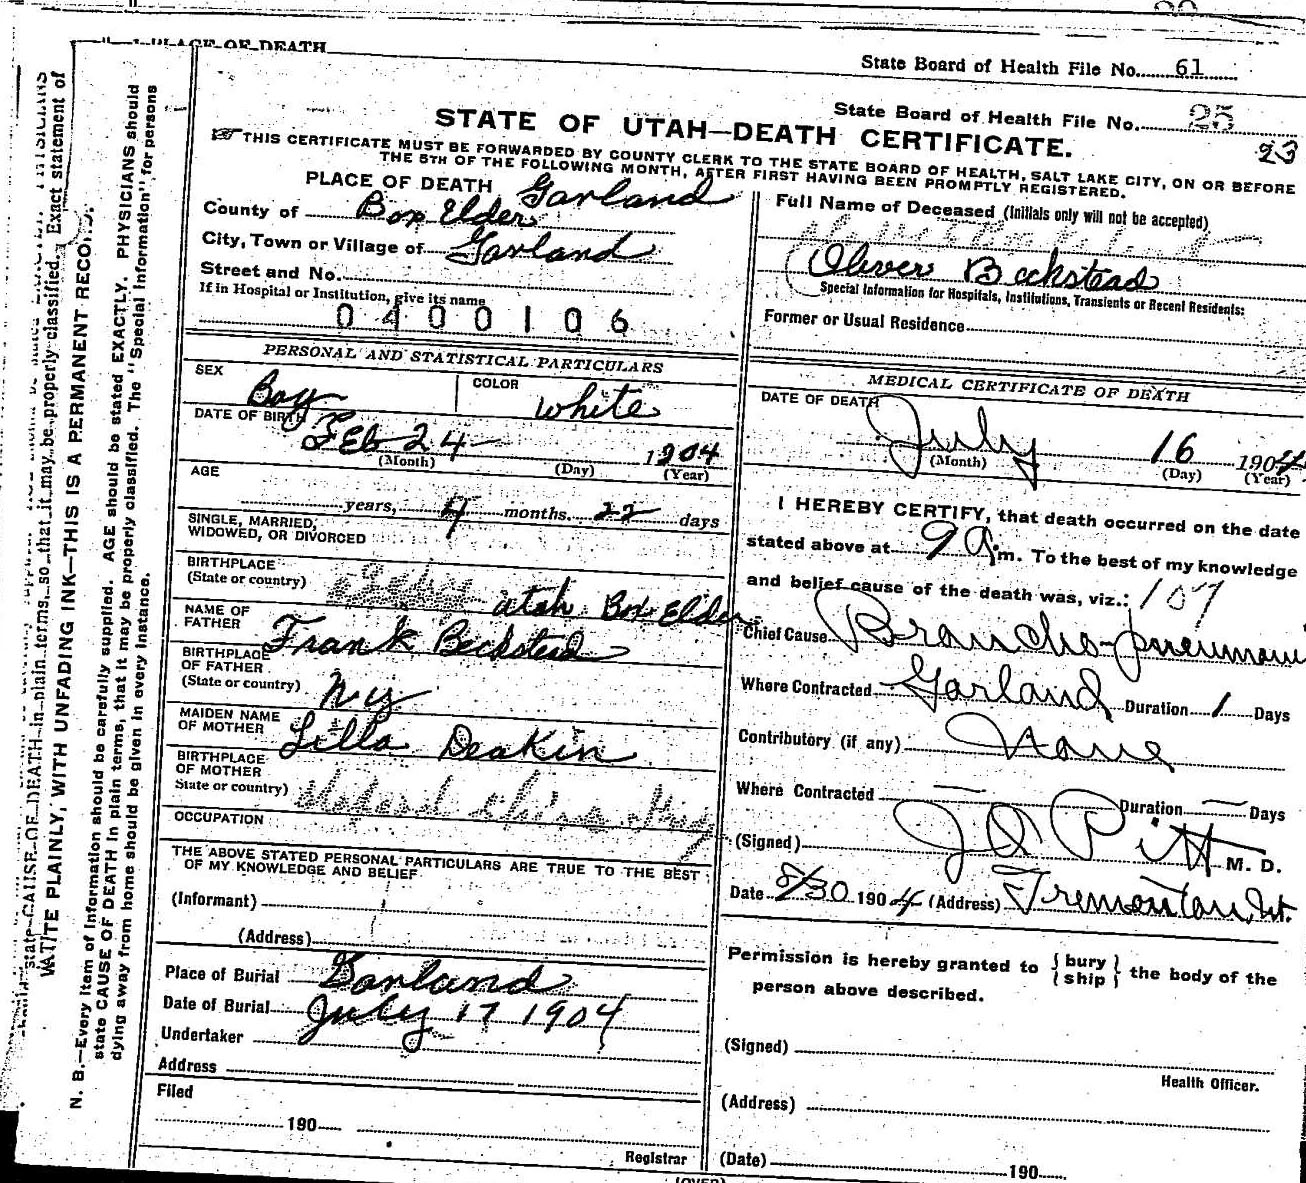 1 PLACE OF DEATH
State Board of Health File No. 61
State Board of Health File No. 25
23
STATE OF UTAH—DEATH CERTIFICATE.
THIS CERTIFICATE MUST BE FORWARDED BY COUNTY CLERK TO THE STATE BOARD OF HEALTH, SALT LAKE CITY, ON OR BEFORE
THE 5TH OF THE FOLLOWING MONTH, AFTER FIRST HAVING BEEN PROMPTLY REGISTERED.
PLACE OF DEATH Garland
County of Box Elder
City, Town or Village of Garland
Street and No.
If in Hospital or Institution, give its name
0400106
Full Name of Deceased (Initials only will not be accepted)
Oliver Beckstead
Special Information for Hospitals, Institutions, Transients or Recent Residents:
Former or Usual Residence
PERSONAL AND STATISTICAL PARTICULARS
SEX Boy COLOR White
DATE OF BIRTH Feb 24 1904
(Month) (Day) (Year)
AGE
years, 4 months. 22 days
SINGLE, MARRIED,
WIDOWED, OR DIVORCED
BIRTHPLACE
(State or country) utah Box Elder
NAME OF
FATHER Frank Beckstead
BIRTHPLACE
OF FATHER
(State or country) N y
MAIDEN NAME
OF MOTHER Lilla Deakin
BIRTHPLACE
OF MOTHER
State or country)
OCCUPATION
THE ABOVE STATED PERSONAL PARTICULARS ARE TRUE TO THE BEST
OF MY KNOWLEDGE AND BELIEF
(Informant)
(Address)
Place of Burial Garland
Date of Burial July 17 1904
Undertaker
Address
Filed
190
Registrar
MEDICAL CERTIFICATE OF DEATH
DATE OF DEATH
July 16 1904
(Month) (Day) (Year)
I HEREBY CERTIFY, that death occurred on the date
stated above at 9 a.m. To the best of my knowledge
and belief cause of the death was, viz.: 107
Chief Cause Broncho-pneumoni
Where Contracted Garland Duration 1 Days
Contributory (if any) None
Where Contracted — Duration — Days
(Signed) J D Pitt M. D.
Date 8/30 1904 (Address) Tremonton, Ut.
Permission is hereby granted to { bury / ship } the body of the
person above described.
(Signed)
Health Officer.
(Address)
(Date) 190
(OVER)
N. B.—Every item of information should be carefully supplied. AGE should be stated EXACTLY. PHYSICIANS should
state CAUSE OF DEATH in plain terms, that it may be properly classified. The "Special Information" for persons
dying away from home should be given in every instance.
WRITE PLAINLY, WITH UNFADING INK—THIS IS A PERMANENT RECORD.
state CAUSE OF DEATH in plain terms, so that it may be properly classified. Exact statement of